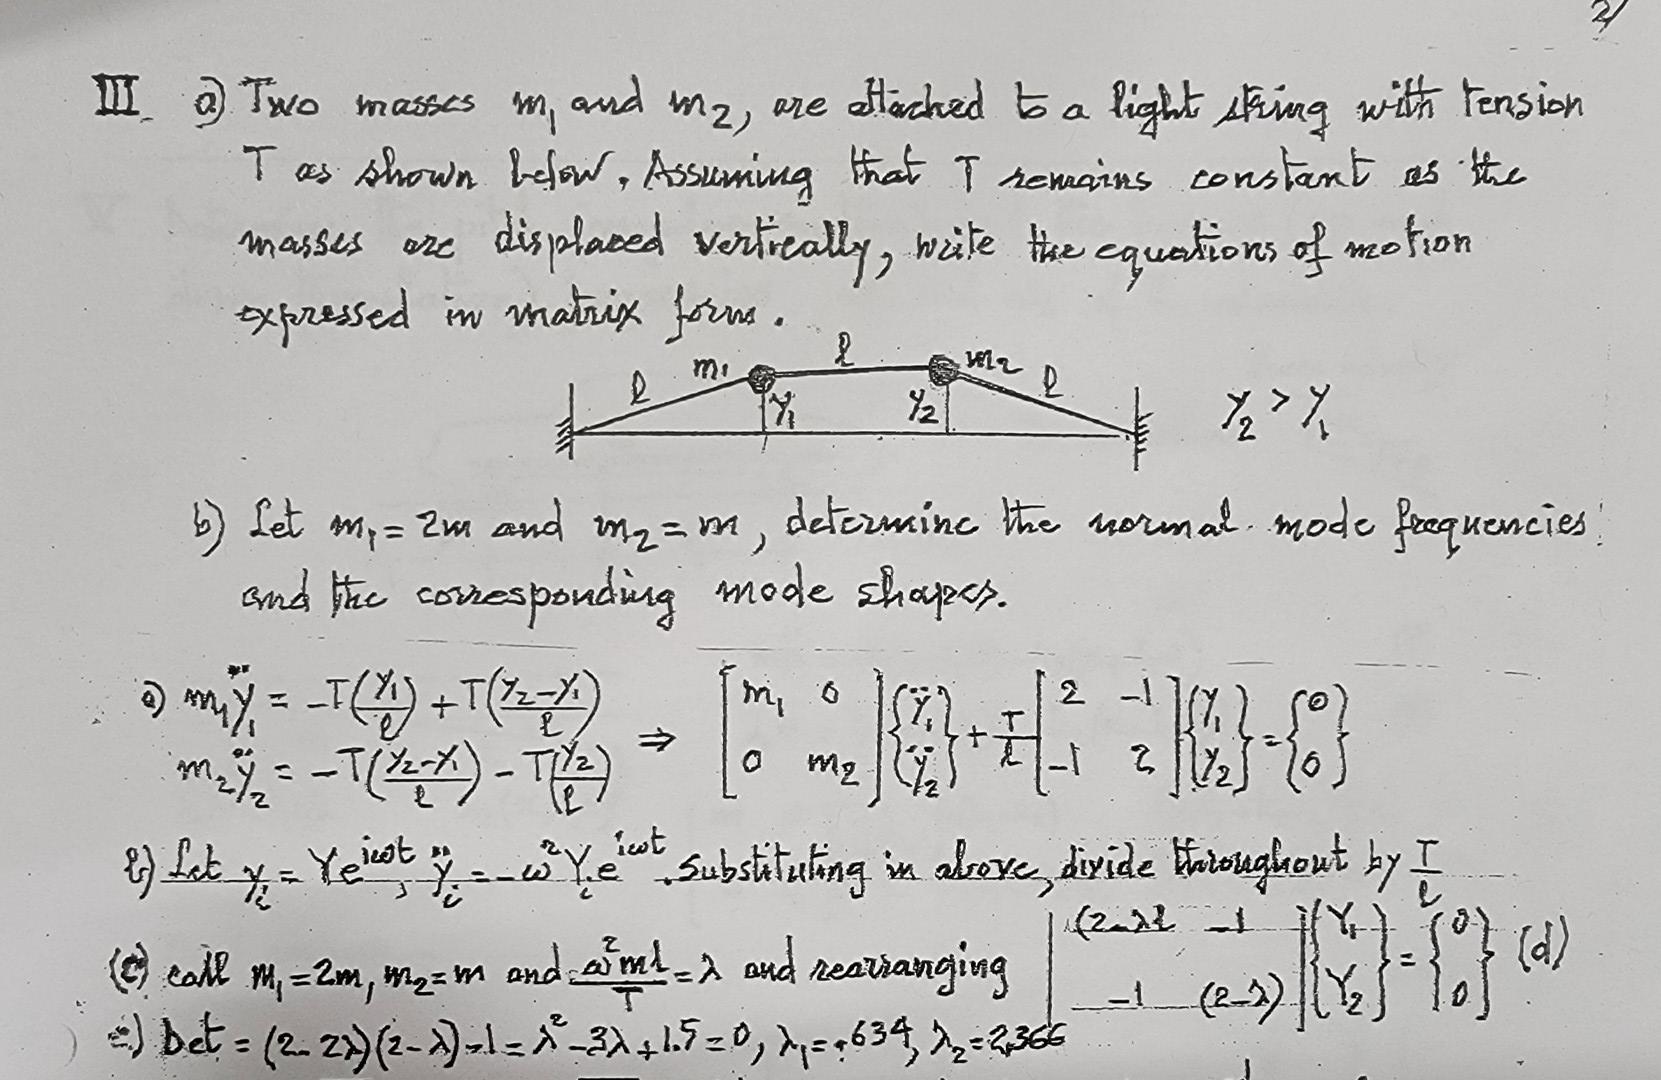 2/
III a) Two masses m₁ and m₂, are attached to a light string with tension
T as shown below. Assuming that T remains constant as the
masses are displaced vertically, write the equations of motion
expressed in matrix form.
l m₁ l m₂ l
Y₁ Y₂ Y₂ > Y₁
b) Let m₁ = 2m and m₂ = m, determine the normal mode frequencies
and the corresponding mode shapes.
a) m₁ÿ₁ = -T(Y₁/l) + T((Y₂-Y₁)/l) ⇒ [m₁ 0; 0 m₂]{ÿ₁; ÿ₂} + T/l [2 -1; -1 2]{Y₁; Y₂} = {0; 0}
m₂ÿ₂ = -T((Y₂-Y₁)/l) - T(Y₂/l)
b) Let yᵢ = Ye^{iωt}, ÿᵢ = -ω²Yᵢe^{iωt}. Substituting in above, divide throughout by T/l
(c) call m₁ = 2m, m₂ = m and ω²ml/T = λ and rearranging |(2-λ2 -1; -1 (2-λ)|{Y₁; Y₂} = {0; 0} (d)
e) Det = (2-2λ)(2-λ)-1 = λ²-3λ+1.5=0, λ₁=.634, λ₂=2.366